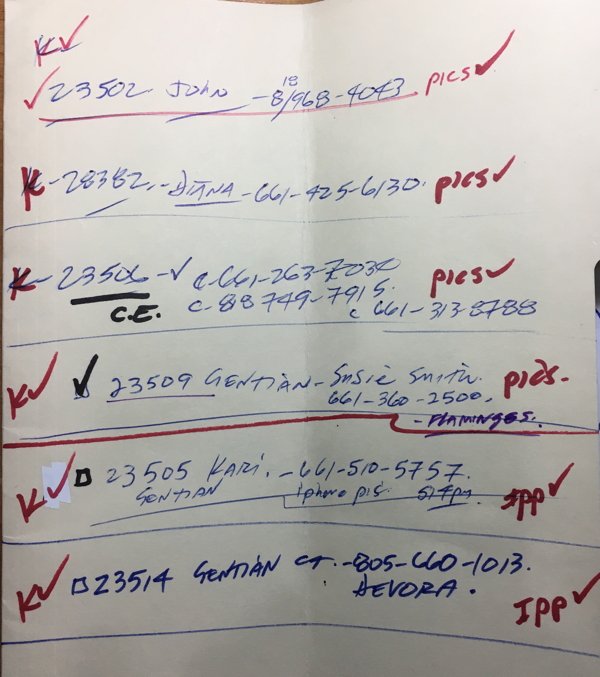 K✓
✓ 23502. JOHN - 818/968-4043. pics ✓
K - 28382. - DIANA - 661-425-6130. pics ✓
K - 23506 - ✓ c-661-263-7030 pics ✓
C.E. c-818 749-7915.
c 661-313-8788
K✓ ✓ 23509 GENTIAN - SUSIE SMITH. pics.
661-360-2500.
- FLAMINGES.
K✓ 23505 KARI. - 661-510-5757. IPP ✓
GENTIAN iphone pis.
K✓ 23514 GENTIAN CT. - 805-660-1013.
DEVORA. IPP ✓